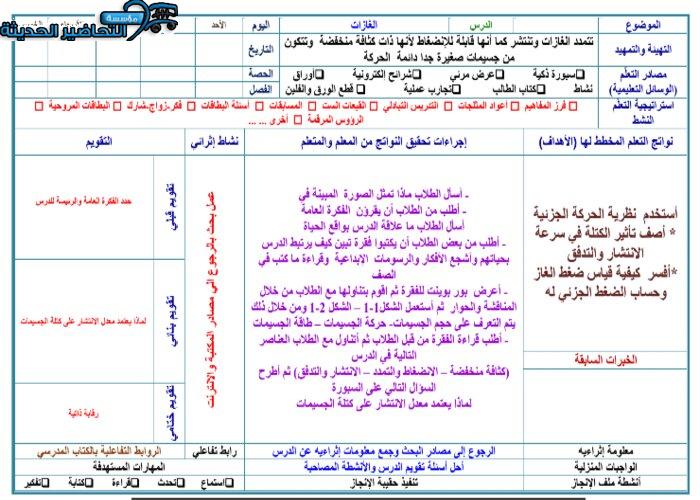 مؤسسة
التحاضير الحديثة
الموضوع
الدرس
الغازات
اليوم
الأحد
التهيئة والتمهيد
تتمدد الغازات وتنتشر كما أنها قابلة للإنضغاط لأنها ذات كثافة منخفضة وتتكون
من جسيمات صغيرة جدا دائمة الحركة
التاريخ
مصادر التعلم
(الوسائل التعليمية)
سبورة ذكية
عرض مرئي
شرائح إلكترونية
أوراق
نشاط
كتاب الطالب
تجارب عملية
قطع الورق والفلين
الحصة
الفصل
استراتيجية التعلم
النشط
فرز المفاهيم
أعواد المثلجات
التدريس التبادلي
القبعات الست
المسابقات
أسئلة البطاقات
فكر-زواج-شارك
البطاقات المروحية
الرؤوس المرقمة
أخرى ... ...
نواتج التعلم المخطط لها (الأهداف)
إجراءات تحقيق النواتج من المعلم والمتعلم
نشاط إثرائي
التقويم
أستخدم نظرية الحركة الجزئية
* أصف تأثير الكتلة في سرعة
الانتشار والتدفق
*أفسر كيفية قياس ضغط الغاز
وحساب الضغط الجزئي له
الخبرات السابقة
ـ أسأل الطلاب ماذا تمثل الصورة المبينة في
- أطلب من الطلاب أن يقرؤن الفكرة العامة
أسأل الطلاب ما علاقة الدرس بواقع الحياة
- أطلب من بعض الطلاب أن يكتبوا فقرة تبين كيف يرتبط الدرس
بحياتهم واشجع الأفكار والرسومات الإبداعية وقراءة ما كتب في
الصف
- أعارض بور بوينت للفقرة ثم اقوم بتناولها مع الطلاب من خلال
المناقشة والحوار ثم أستعمل الشكل1-1 – الشكل 2-1 ومن خلال ذلك
يتم التعرف على حجم الجسيمات- حركة الجسيمات – طاقة الجسيمات
- أطلب قراءة الفقرة من قبل الطلاب ثم أتناول مع الطلاب العناصر
التالية في الدرس
(كثافة منخفضة – الانضغاط والتمدد – الانتشار والتدفق) ثم أطرح
السؤال التالي على السبورة
لماذا يعتمد معدل الانتشار على كتلة الجسيمات
عمل بحث بالرجوع الي مصادر المكتبة والانترنت
تقويم قبلي
حدد الفكرة العامة والرئيسة للدرس
تقويم بنائي
لماذا يعتمد معدل الانتشار على كتلة الجسيمات
تقويم ختامي
رقابة ذاتية
معلومة إثرائيه
الرجوع إلى مصادر البحث وجمع معلومات إثراءيه عن الدرس
رابط تفاعلي
الروابط التفاعلية بالكتاب المدرسي
الواجبات المنزلية
أحل أسئلة تقويم الدرس والأنشطة المصاحبة
المهارات المستهدفة
أنشطة ملف الإنجاز
تنفيذ حقيبة الإنجاز
استماع
تحدث
قراءة
كتابة
تفكير